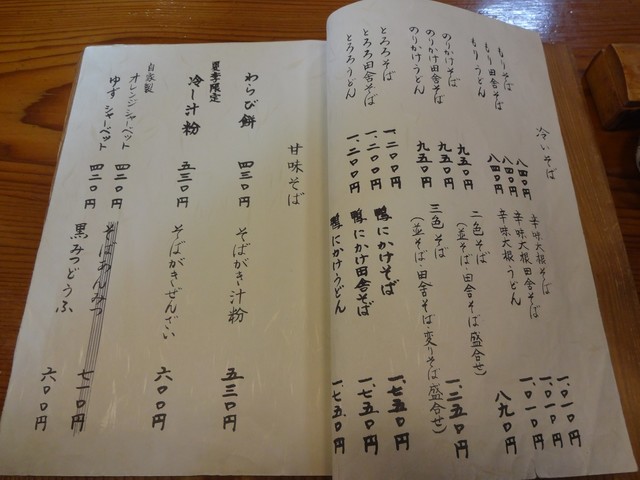 冷いそば
もりそば 八四〇円
もり田舎そば 八四〇円
もりうどん 八四〇円
のりかけそば 九五〇円
のりかけ田舎そば 九五〇円
のりかけうどん 九五〇円
とろろそば 一、二〇〇円
とろろ田舎そば 一、二〇〇円
とろろうどん 一、二〇〇円
辛味大根そば 一、〇一〇円
辛味大根田舎そば 一、〇一〇円
辛味大根うどん 一、〇一〇円
二色そば 八九〇円
(並そば・田舎そば盛合せ)
三色そば 一、二五〇円
(並そば・田舎そば・変りそば盛合せ)
鴨にかけそば 一、七五〇円
鴨にかけ田舎そば 一、七五〇円
鴨にかけうどん 一、七五〇円
甘味そば
わらび餅 四三〇円
夏季限定
冷し汁粉 五三〇円
自家製
オレンジシャーベット 四二〇円
ゆずシャーベット 四二〇円
そばがき汁粉 五三〇円
そばがきぜんざい 六〇〇円
そばあんみつ 七一〇円
黒みつどうふ 六〇〇円